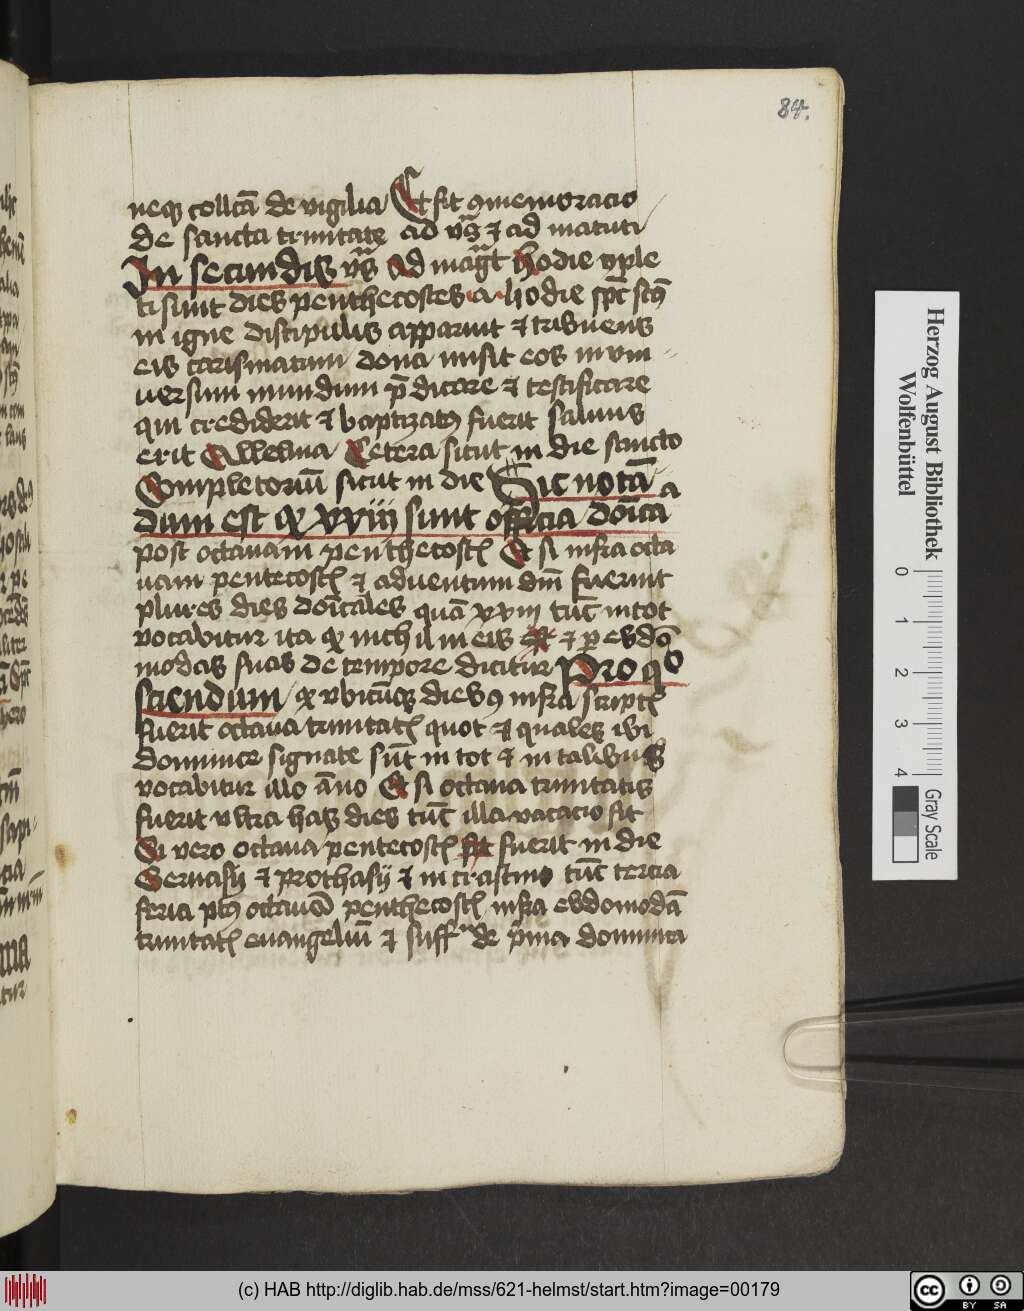 84.
neqꝫ collcā de vigilia Et fit ꝯmemoracio
de sancta trinitate ad vꝭ ⁊ ad matuti
In secundis vꝭ Ad mag̅t Hodie ꝯple
ti sunt dies penthecostes a Hodie sp̅c scꝰ
in igne discipulis apparuit ⁊ tribuens
eis carismatum dona misit eos in vni
uersum mundum p̄dicare ⁊ testificare
qui crediderit ⁊ baptizatꝰ fuerit saluus
erit Alleluia Cetera sicut in die sancto
Completoriū sicut in die Sic notā a
dum est qꝫ xxiij sunt officia doīca
post octauam penthecostꝭ Et si infra octa
uam pentecostꝭ ⁊ aduentum dnī fuerint
plures dies doīcales quā xxiij tūc in tot
vocabitur ita qꝫ nichil in eis ⁊ p ebdō
modas suas de tempore dicitur Pro qᵒ
sciendum qꝫ vbicūqꝫ diebꝰ infra scriptꝭ
fuerit octaua trinitatꝭ quot ⁊ quales ibi
dominice signate sūt in tot ⁊ in talibus
vocabitur illo āno Et si octaua trinitatis
fuerit vltra has dies tūc illa vacacio fit
Si vero octaua pentecostꝭ fuerit in die
Geruasij ⁊ prothasij ⁊ in crastino tūc tercia
feria pꝰ octauā penthecostꝭ infra ebdomodā
trinitatꝭ euangeliū ⁊ suff de p̄ma dominica
Herzog August Bibliothek
Wolfenbüttel
0 1 2 3 4
Gray Scale
(c) HAB http://diglib.hab.de/mss/621-helmst/start.htm?image=00179
cc BY SA